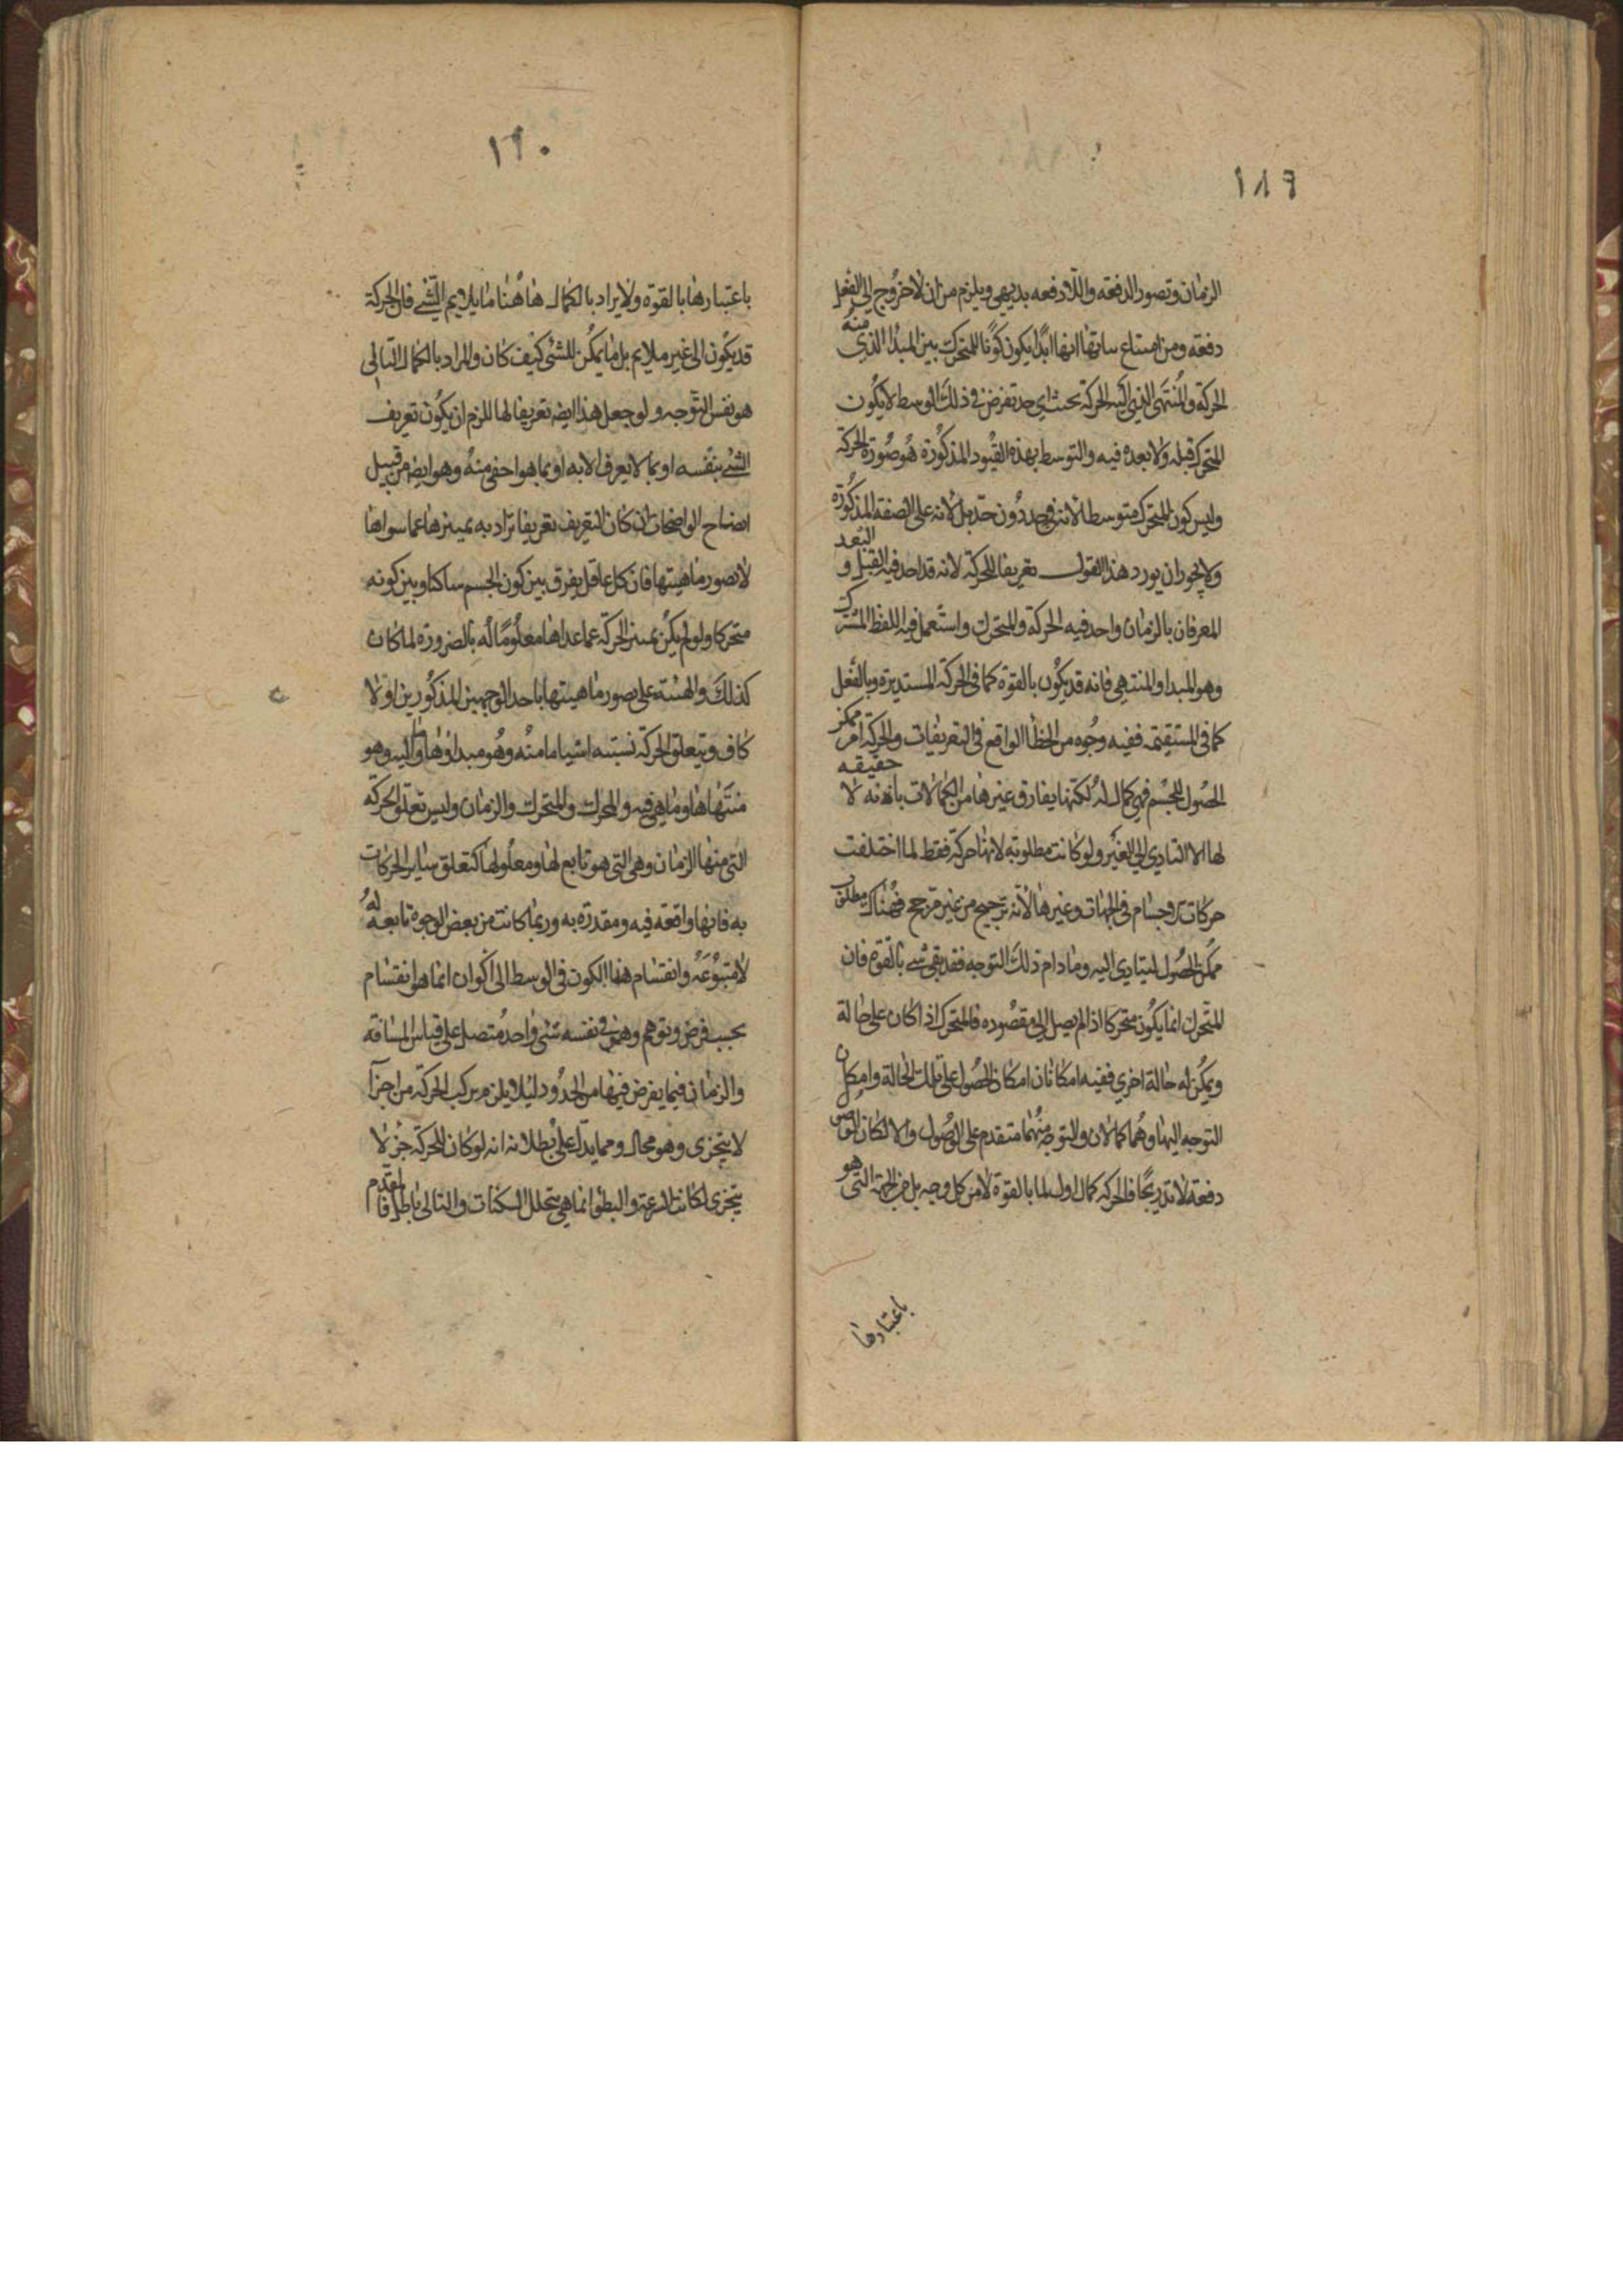 ١٨٩
الزمان وتصور الدفعه واللادفعه بديهي ويلزم من ان لا خروج الى الفعل
دفعه ومن امتناع ثباتها انها ابدا يكون كونا للمتحرك بين المبدأ الذي منه
الحركة والمنتهى الذي اليه الحركة بحيث اي حد تفرض في ذلك الوسط لا يكون
المتحرك قبله ولا بعده فيه والتوسط بهذه القيود المذكورة هو صورة الحركة
وليس كون المتحرك متوسطا لانه في حد دون حد بل لانه على الصفة المذكورة
ولا يجوز ان يورد هذا القول تعريفا للحركة لانه قد اخذ فيه القبل و البعد
المعرفان بالزمان واخذ فيه الحركة والمتحرك واستعمل فيه اللفظ المشترك
وهو المبدا والمنتهي فانه قد يكون بالقوة كما في الحركة المستديرة وبالفعل
كما في المستقيمة ففيه وجوه من الخطأ الواقع في التعريفات والحركة امر ممكن
الحصول للجسم فهي كمال له لكنها يفارق غيرها من الكمالات بانه لا حقيقه
لها الا التادي الى الغير ولو كانت مطلوبة لانها حركة فقط لما اختلفت
حركات الاجسام في الجهات وغيرها لانه ترجيح من غير مرجح فهناك مطلوب
ممكن الحصول ليتادى اليه وما دام ذلك التوجه فقد بقي شي بالقوة فان
المتحرك انما يكون متحركا اذا لم يصل الى مقصوده فالمتحرك اذا كان على حالة
ويمكن له حالة اخري ففيه امكانان امكان الحصول على تلك الحالة وامكان
التوجه اليها وهما كمالان والتوجه منهما متقدم على الوصول والا لكان الوصول
دفعة لا تدريجا فالحركة كمال اول لما بالقوة لا من كل وجه بل من الجهة التي هو
باعتبارها
١٩٠
باعتبارها بالقوة ولا يراد بالكمال هاهنا ما يلايم الشي فان الحركة
قد يكون الى غير ملايم بل ما يمكن للشي كيف كان والمراد بالكمال الثاني
هو نفس التوجه ولو جعل هذا ايضه تعريفا لها للزم ان يكون تعريف
الشي بنفسه او بما لا يعرف الا به او بما هو اخفى منه وهو ايضه من قبيل
ايضاح الواضحات ان كان التعريف تعريفا يراد به تمييزها عما سواها
لا تصور ماهيتها فان كل عاقل يفرق بين كون الجسم ساكنا وبين كونه
متحركا ولو لم يكن تمييز الحركة عما عداها معلوما له بالضرورة لما كان
كذلك والهيئة على تصور ماهيتها باحد الوجهين المذكورين اولا
كاف ويتعلق الحركة بستة اشيا ما منه وهو مبداؤها وما اليه وهو
منتهاها وما هي فيه والمحرك والمتحرك والزمان وليس تعلق الحركة
التي منها الزمان وهي التي هو تابع لها ومعلولها كتعلق سائر الحركات
به فانها واقعه فيه ومقدرة به وربما كانت من بعض الوجوه تابعه له
لا متبوعه وانقسام هذا الكون في الوسط الى اكوان انما هو انقسام
بحسب فرض وتوهم وهو في نفسه شي واحد متصل على قياس المسافة
والزمان فيما يفرض فيها من الحدود ليلا يلزم تركب الحركة من اجزآ
لا يتجزى وهو محال ومما يدل على بطلانه انه لو كان للحركة جزء لا
يتجزى لكانت السرعة والبطؤ انما هي بتخلل السكنات والتالي باطل فالمقدم